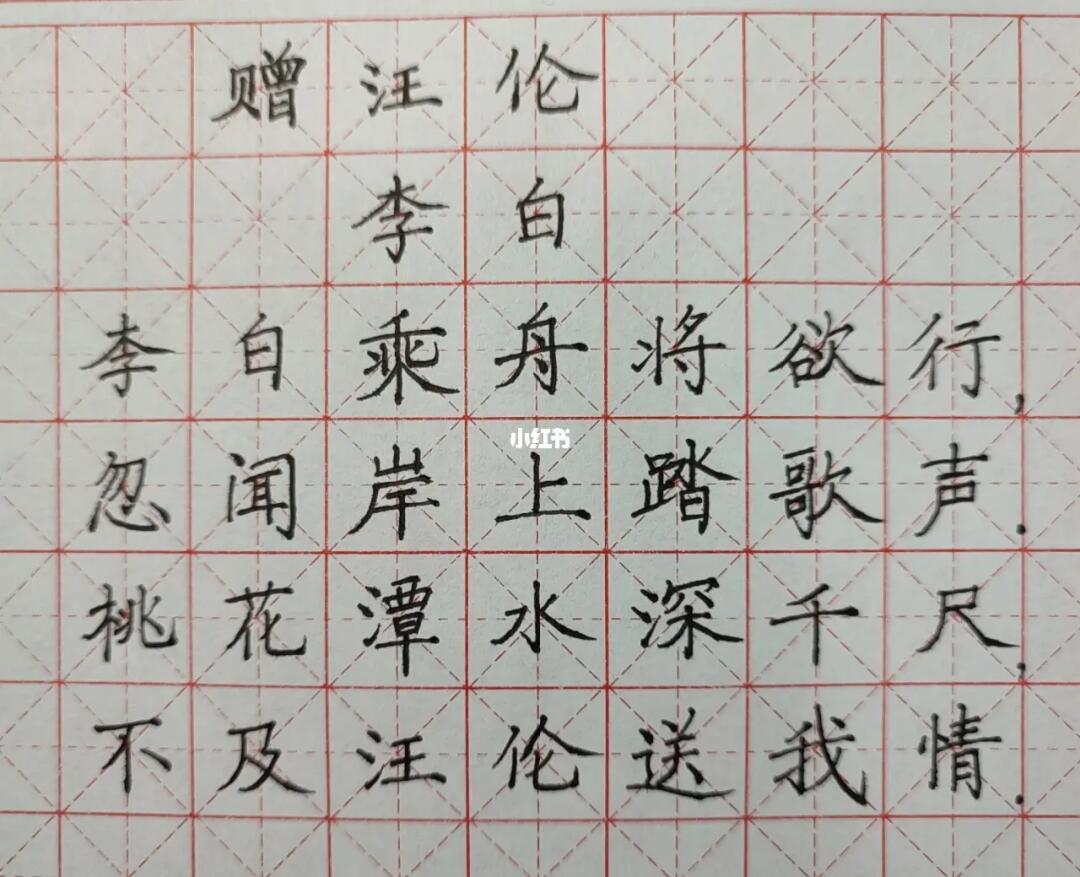 赠汪伦
李白
李白乘舟将欲行,
小红书
忽闻岸上踏歌声.
桃花潭水深千尺,
不及汪伦送我情.